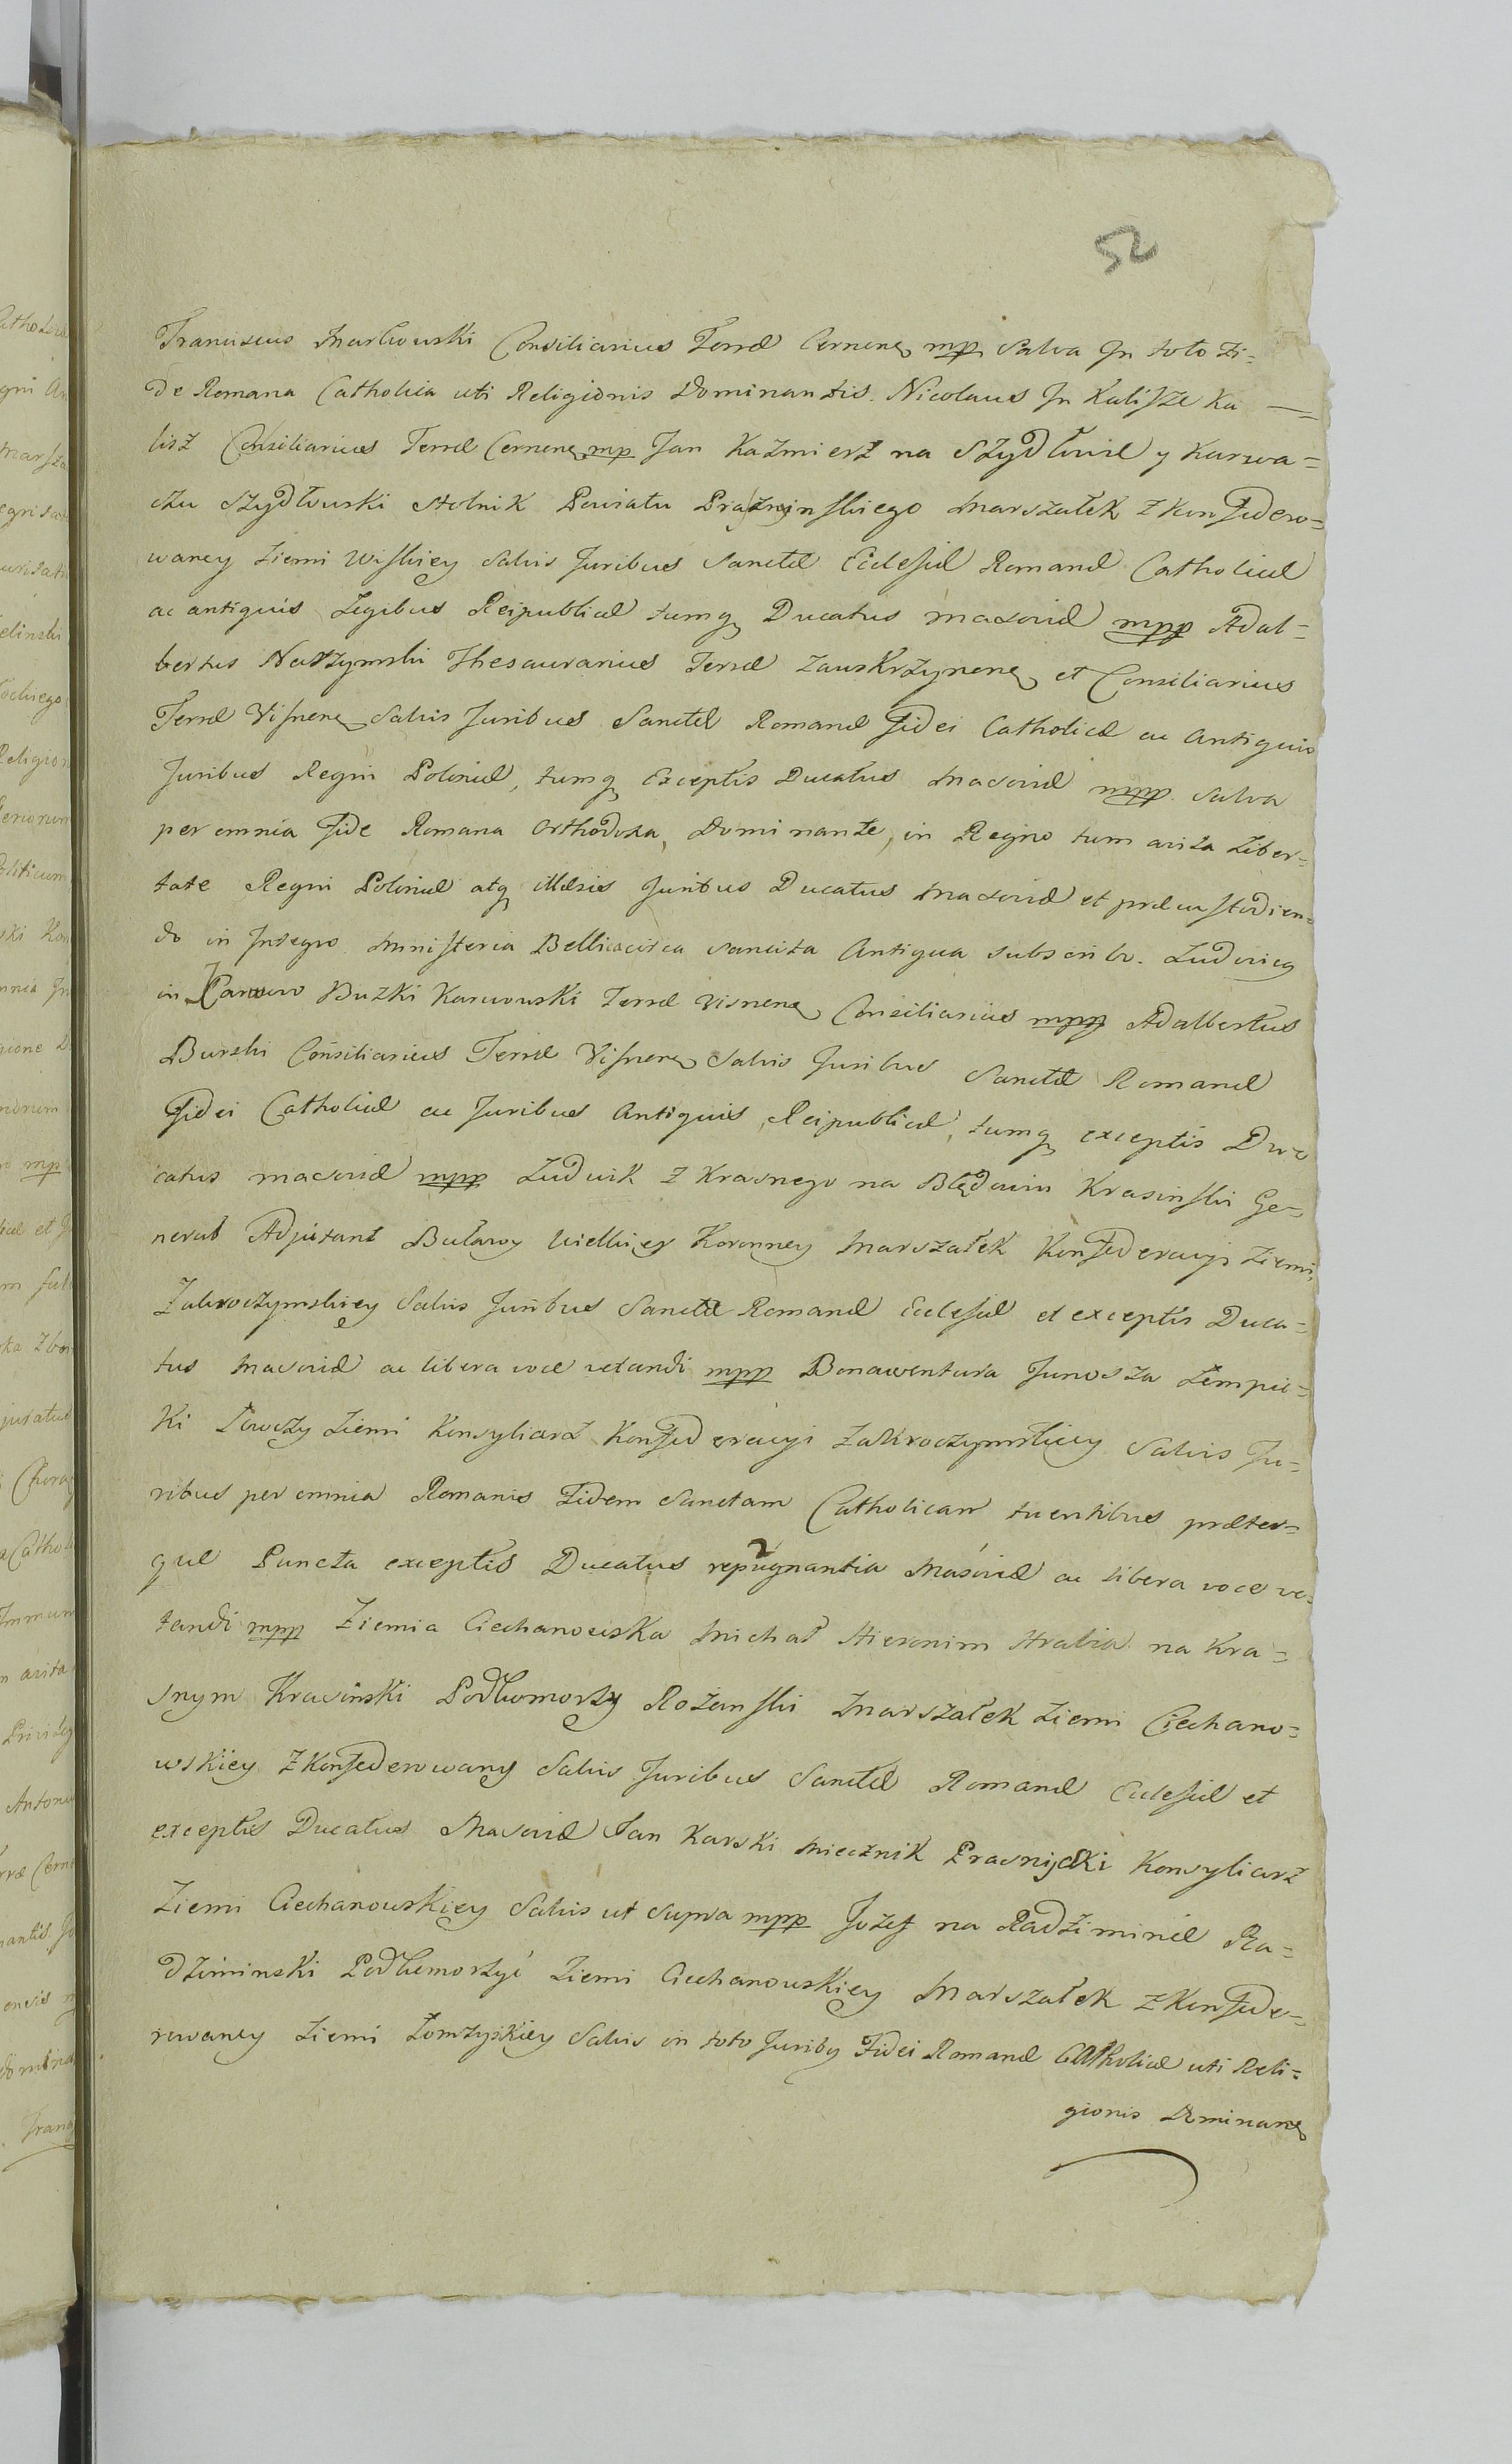 52
Franciscus Markowski Consiliarius Terræ Cernens mpp Salva In toto Fi=
de Romana Catholica uti Religionis Dominantis. Nicolaus In Kalisze Ka=
lisz Consiliarius Terræ Cernens mp Jan Kazmierz na Szydłowie y Karwa=
czu Szydłowski Stolnik Powiatu Praszninskiego Marszałek Zkonfedero=
waney Ziemi Wiskiey Salvis Juribus Sanctæ Ecclesiæ Romanæ Catholicæ
ac antiquis Legibus Reipublicæ tumq Ducatus Masoviæ mpp Adal=
bertus Narzymski Thesaurarius Terræ Zawskrzynens et Consiliarius
Terræ Visnens Salvis Juribus Sanctæ Romanæ Fidei Catholicæ ac Antiquis
Juribus Regni Poloniæ, tumq Exceptis Ducatus Masoviæ mpp Salva
per omnia Fide Romana Orthodoxa, Dominante, in Regno tum avita Liber=
tate Regni Poloniæ atq illæsis Juribus Ducatus Masoviæ et præcustodien=
do in Integro Ministeria Bellica circa sancita Antiqua subscribo. Ludovicq
in Karwowo Buzki Karwowski Terræ Visnens Consiliarius mpp Adalbertus
Burski Consiliarius Terræ Visnens Salvis Juribus Sanctæ Romanæ
Fidei Catholicæ ac Juribus Antiquis Reipublicæ, tumq exceptis Du=
catus Masoviæ mpp Ludwik z Krasnego na Błędowiu Krasinski Ge=
nerał Adjutant Buławy Wielkiey Koronney Marszałek Konfederacyi Ziemi
Zakroczymskiey Salvis Juribus Sanctæ Romanæ Ecclesiæ et exceptis Duca=
tus Masoviæ ac libera voce vetandi mpp Bonawentura Junosza Lempic=
ki Łowczy Ziemi Konsyliarz Konfederacyi Zakroczymskiey Salvis Ju=
ribus per omnia Romanis Fidem Sanctam Catholicam tuentibus præter=
quæ Puncta exceptis Ducatus repugnantia Masoviæ ac libera voce ve=
tandi mpp Ziemia Ciechanowska Michał Hieronim Hrabia na Kra=
snym Krasinski Podkomorzy Rożanski Marszałek Ziemi Ciechano=
wskiey Zkonfederowany Salvis Juribus Sanctæ Romanæ Ecclesiæ et
exceptis Ducatus Masoviæ Jan Karski Miecznik Prasnycki Konsyliarz
Ziemi Ciechanowskiey Salvis ut supra mpp Jozef na Radziminie Ra=
dziminski Podkomorzyc Ziemi Ciechanowskiey Marszałek Zkonfede=
rowaney Ziemi Łomzyskiey Salvis in toto Juribq Fidei Romanæ Catholicæ uti Reli=
gionis Dominans